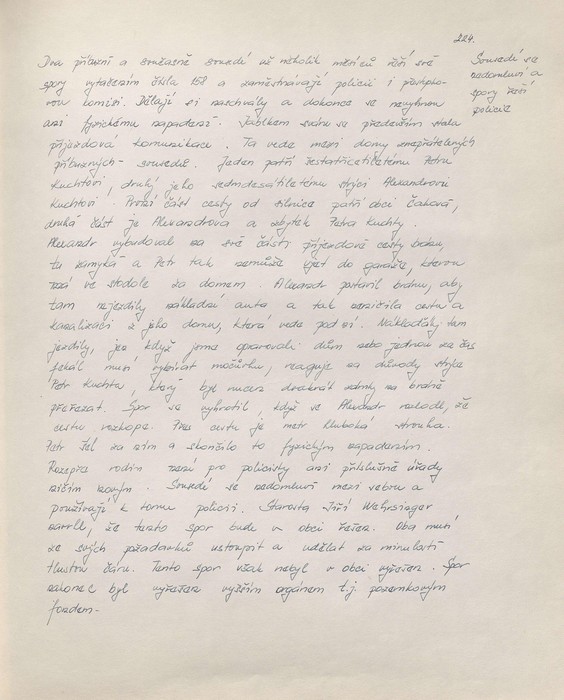 224.
Dva příbuzní a současně sousedé už několik měsíců řeší své
spory vytáčením čísla 158 a zaměstnávají policii i přestupko-
vou komisi. Dělají si naschvály a dokonce se nevyhnou
ani fyzickému napadení. Jablkem sváru se především stala
příjezdová komunikace. Ta vede mezi domy znepřátelených
příbuzných - sousedů. Jeden patří šestatřicetiletému Petru
Kuchtovi, druhý jeho sedmdesátiletému strýci Alexandrovi
Kuchtovi. První část cesty od silnice patří obci Čaková,
druhá část je Alexandrova a zbytek Petra Kuchty.
Alexandr vybudoval na své části příjezdové cesty bránu,
tu zamyká a Petr tak nemůže vjet do garáže, kterou
má ve stodole za domem. Alexandr postavil bránu, aby
tam nejezdily nákladní auta a tak neničila cestu a
kanalizaci z jeho domu, která vede pod ní. Náklaďáky tam
jezdily, jen když jsme opravovali dům nebo jednou za čas
fekál musí vybírat močůvku, reaguje na důvody strýce
Petr Kuchta, který byl nucen dvakrát zámky na bráně
přeřezat. Spor se vyhrotil, když se Alexandr rozhodl, že
cestu rozkope. Přes cestu je metr hluboká strouha.
Petr šel za ním a skončilo to fyzickým napadením.
Rozepře rodin není pro policisty ani příslušné úřady
ničím novým. Sousedé se nedomluví mezi sebou a
používají k tomu policii. Starosta Jiří Wehrsinger
navrhl, že tento spor bude v obci řešen. Oba musí
ze svých požadavků ustoupit a udělat za minulostí
tlustou čáru. Tento spor však nebyl v obci vyřešen. Spor
nakonec byl vyřešen vyšším orgánem t.j. pozemkovým
fondem.
Sousedé se
nedomluví a
spory řeší
policie